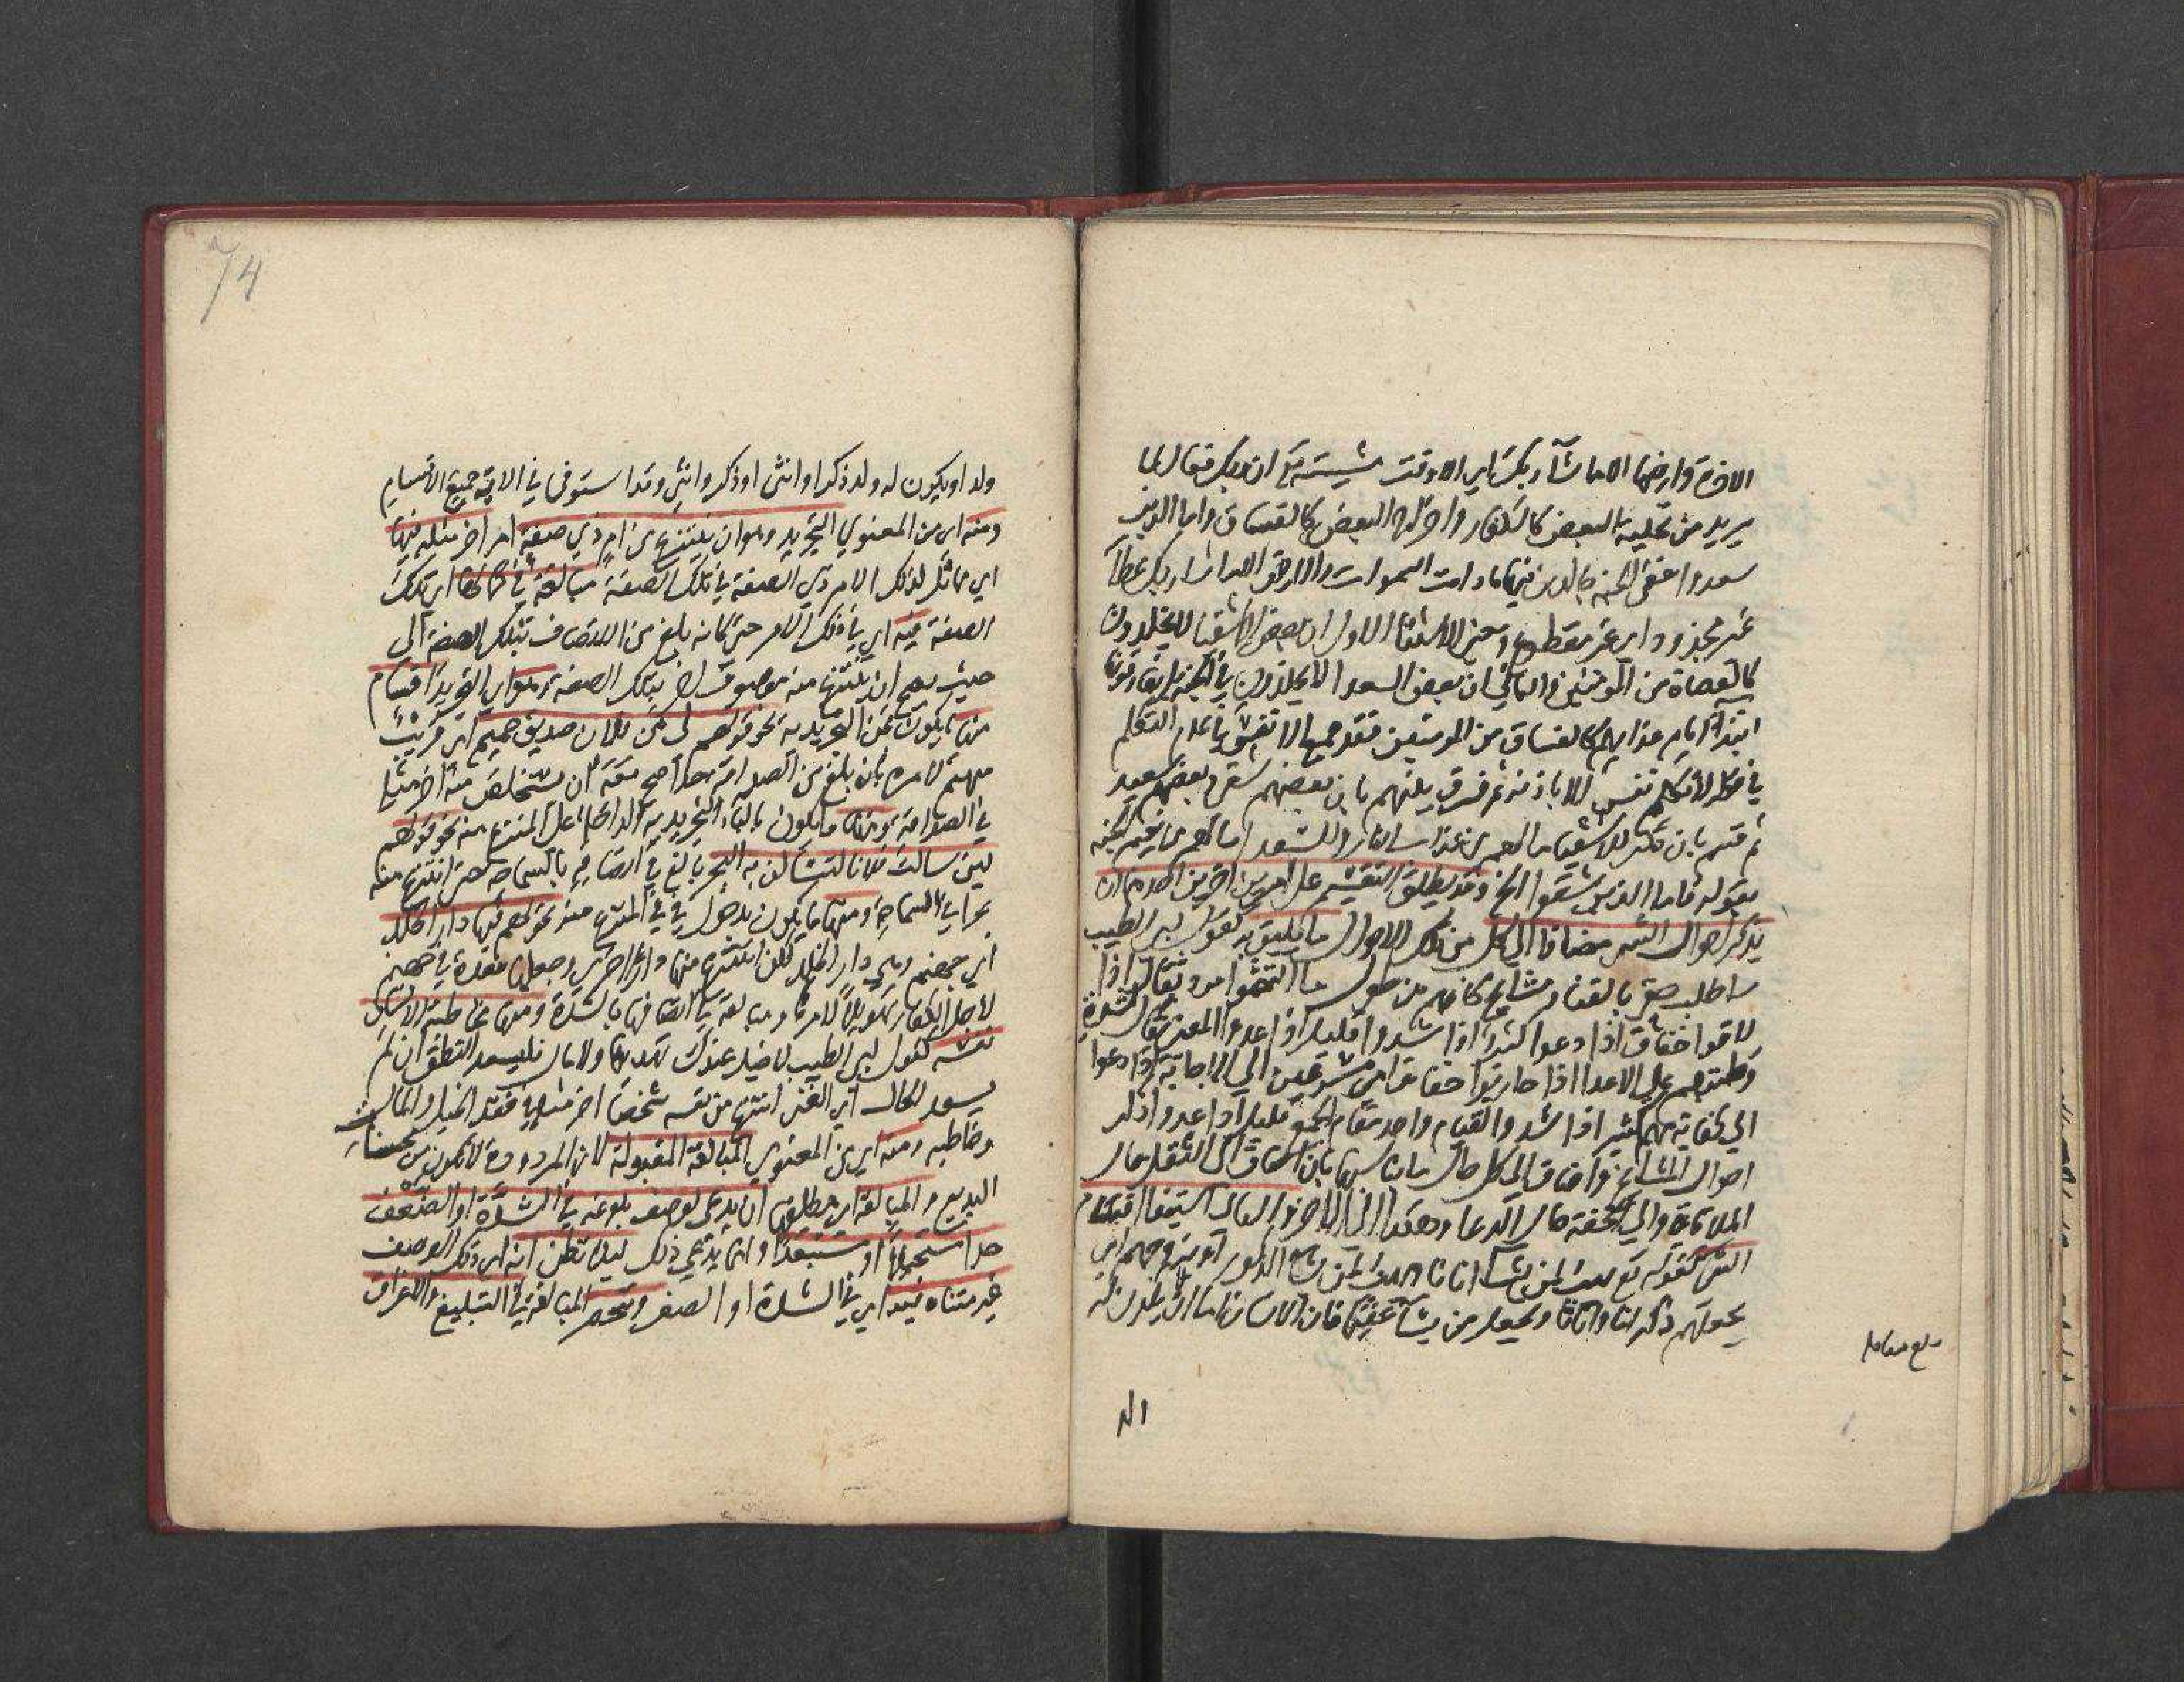 الاخرة وارضها الا ما شاء ربك اي الا وقت مشيته تع ان ربك فعال لما
يريد من تخليد البعض كالكفار واخراج البعض كالفساق واما الذين
سعدوا ففي الجنة خالدين فيها ما دامت السموات والارض الا ما شا ربك عطآ
غير مجذوذ اي غير مقطوع ومعنى الاستثنا الاول ان بعض الاشقيا لا يخلدون
كالعصاة من المومنين والثاني ان بعض السعدا لا يخلدون في الجنة بل يفارقونها
ابتدآ ايام عذابهم كالفساق من المومنين فقد جمع الانفس باعدام التكلم
في قوله لا تكلم نفس الا باذنه ثم فرق بينهم بان بعضهم شقي وبعضهم سعيد
ثم قسم بان للاشقيا ما لهم من عذاب النار وللسعدا ما لهم من نعيم الجنة
بقوله فاما الذين شقوا الخ وقد يطلق التقسيم على امرين اخرين احدهما ان
يذكر احوال الشي مضافا الى كل من تلك الاحوال ما يليق به كقول ابي الطيب
ساطلب حقي بالقنا ومشايخ كانهم من طول ما التثموا مرد ثقال اذا
لاقوا خفاف اذا دعوا كثير اذا شدوا قليل اذا عدوا
وطئتهم على الاعدا اذا حاربوا خفاف اي مسرعين الى الاجابة اذا دعوا
الى كفاية مهم كثير اذا شدوا لقيام واحد مقام الجمع قليل اذا عدوا ذكر
احوال المشايخ واضاف الى كل حال ما يناسبها بان اضاف الى الثقل حال
الملاقاة والى الخفة حال الدعا وهكذا الى الاخر والثاني استيفا اقسام
الشي كقوله تع يهب لمن يشآ اناثا ويهب لمن يشآ الذكور او يزوجهم اي
يجعلهم ذكرانا واناثا ويجعل من يشآ عقيما فان الانسان اما ان لا يكون له
ولد
ولد او يكون له ولد ذكر او انثى او ذكر وانثى وقد استوفى في الاية جميع الاقسام
ومنه اي من المعنوي التجريد وهو ان ينتزع من امر ذي صفة امر اخر مثله فيها
اي مماثل لذلك الامر ذي الصفة في تلك الصفة مبالغة في كمالها اي تلك
الصفة فيه اي في ذلك الامر حتى كانه بلغ من الاتصاف بتلك الصفة الى
حيث يصح ان ينتزع منه موصوف اخر بتلك الصفة وهو اي التجريد اقسام
منها ما يكون بمن التجريدية نحو قولهم لي من فلان صديق حميم اي قريب
مهتم لامره بلغ من الصداقة حدا صح معه ان يستخلص منه اخر مثله
في الصداقة ومنها ما يكون بالبآء التجريدية الداخلة على المنتزع منه نحو قولهم
لين سالت فلانا لتسألن به البحر بالغ في اتصافه بالسماحة حتى انتزع منه
بحرا في السماحة ومنها ما يكون بدخول في في المنتزع منه نحو لهم فيها دار الخلد
اي جهنم وهي دار الخلد لكن انتزع منها دارا اخرى وجعلها معدة في جهنم
لاجل الكفار تهويلا لامرها ومبالغة في اتصافها بالشدة ومنها مخاطبة الانسان
نفسه كقول ابي الطيب لا خيل عندك تهديها ولا مال فليسعد النطق ان لم
يسعد الحال اي الغنى انتزع من نفسه شخصا اخر مثله في فقد الخيل والمال
وخاطبه ومنه اي من المعنوي المبالغة المقبولة لان المردودة لا تكون من محسنات
البديع والمبالغة اي مطلقها ان يدعى لوصف بلوغه في الشدة او الضعف
حدا مستحيلا او مستبعدا وانما يدعى ذلك ليلا يظن انه اي ذلك الوصف
غير متناه فيه اي في الشدة او الضعف وتنحصر المبالغة في التبليغ والاغراق
بلغ مقابلة
74